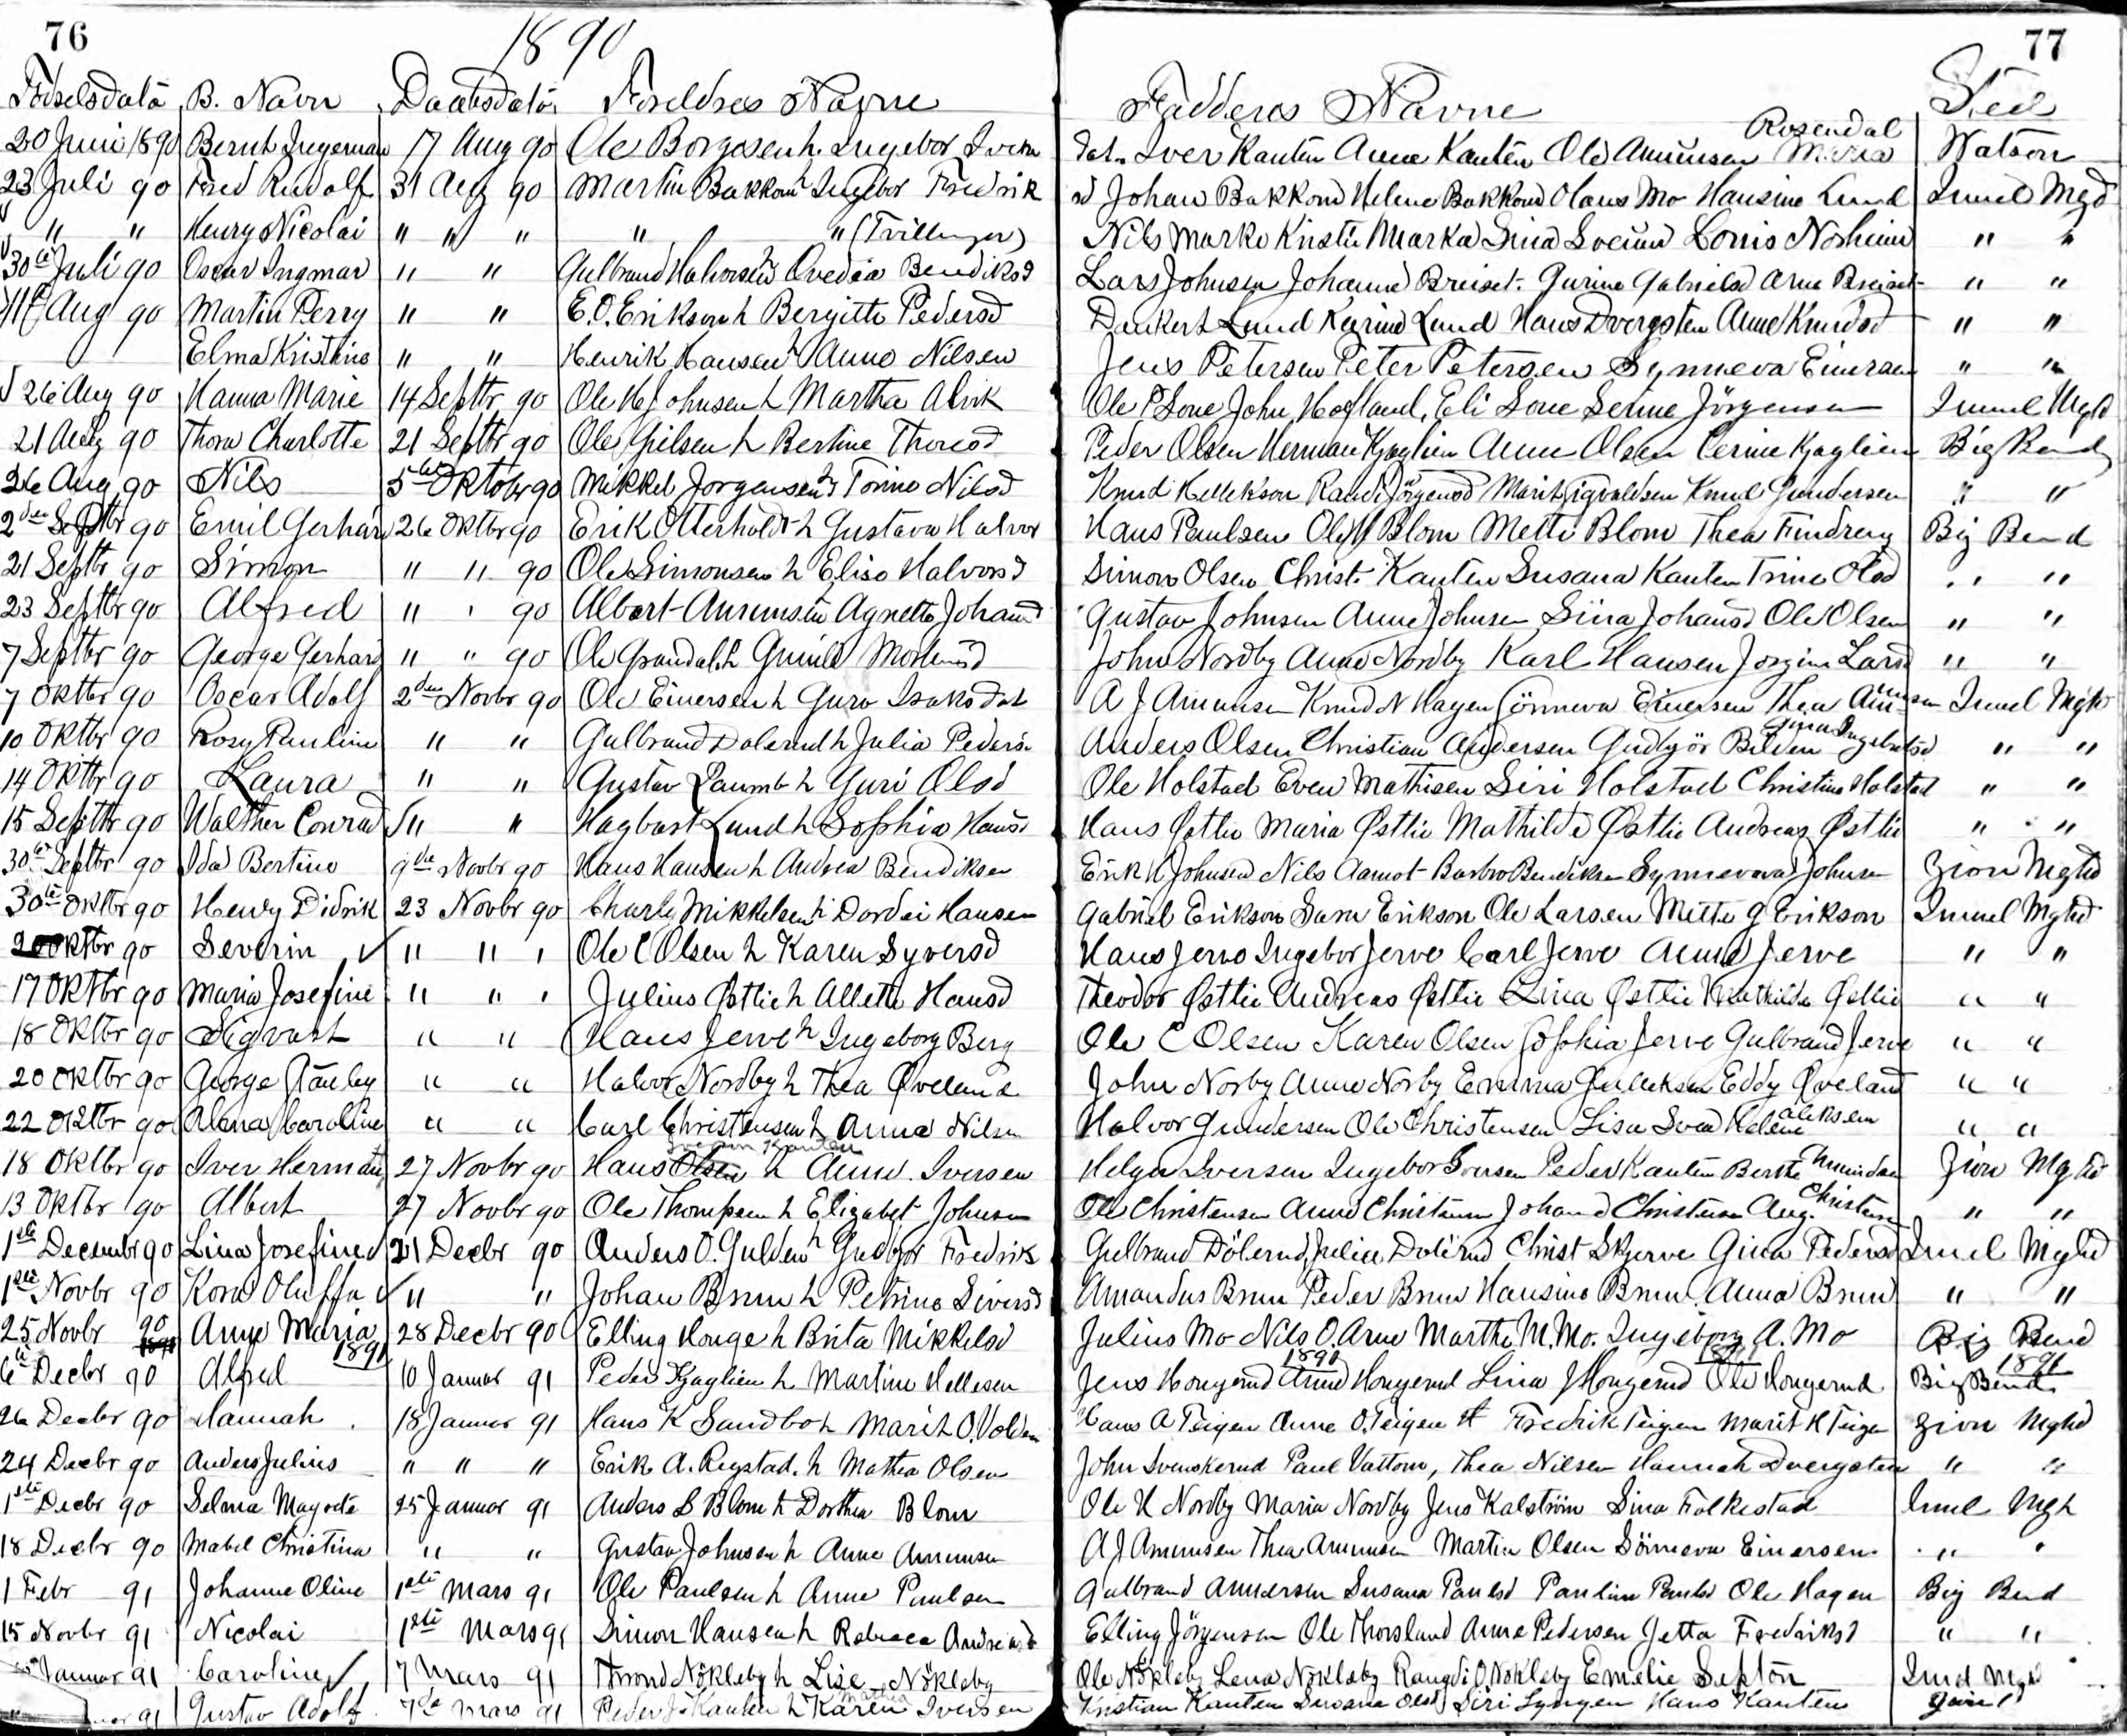 76 1890 77
Födselsdato B. Navn Daabsdato Foreldres Navne Fadderes Navne Sted
20 Juni 1890 Bernt Ingeman 17 Aug 90 Ole Borgesen h. Ingebor Ivers dat. Iver Kanten Anne Kanten Ole Amunsen Maria Rosendal Watson
23 Juli 90 Fred Rudolf 31 Aug 90 Martin Bakkom h Ingebor Fredrik sd Johan Bakkom Helene Bakkom Olaus Mo Hansine Lund Imuel Mgd
" " Henry Nicolai " " " " " (Tvillinger) Nils Marko Kristi Marka Sina Louis Norheim " "
30te Juli 90 Oscar Ingmar " " Gulbrand Halvorsen h Ovedia Bendiksd Lars Johnsen Johanne Breiset. Gurine Gabrielsd Arne Breiset " "
11te Aug 90 Martin Perry " " E.O. Erikson h Bergitte Pedersd Dankert Lund Karine Lund Hans Dvergsten Anne Knudsd " "
Elma Kristine " " Henrik Hansen h Anne Nilsen Jens Petersen Peter Petersen Synneva Einersen " "
26 Aug 90 Hanna Marie 14 Septbr 90 Ole H Johnsen h Martha Alvik Ole P Lone John Hofland, Eli Lone Serine Jörgensen Imuel Mgd
21 Aug 90 Thora Charlotte 21 Septbr 90 Ole Gilsen h Bertine Thoresd Peder Olsen Herman Kjaglien Anne Olsen Perine Kjaglien Big Bend
26 Aug 90 Nils 5te Oktobr 90 Mikkel Jorgensen h Torine Nilsd Knud Hellekson Randi Jörgensd Marit Sigvaldsen Knud Gundersen " "
2den Septbr 90 Emil Gerhard 26 Oktbr 90 Erik Otterholdt h Gustava Halvor Hans Paulsen Ole Blom Mette Blom Thea Findreng Big Bend
21 Septbr 90 Simon " " 90 Ole Simonsen h Elise Halvorsd Simon Olsen Christ. Kanten Susana Kanten Trine Olsd " "
23 Septbr 90 Alfred " " 90 Albert Amunsen h Agnette Johansd Gustav Johnsen Anne Johnsen Sina Johansd Ole Olsen " "
7 Septbr 90 George Gerhard " " 90 Ole Grandal h Gunild Mortensd John Nordby Anne Nordby Karl Hansen Jorgine Larsd " "
7 Oktbr 90 Oscar Adolf 2den Novbr 90 Ole Einersen h Guro Isaksdat A J Amunsen Knud N Hagen Sönneva Einersen Thea Amunsen Imuel Mgd
10 Oktbr 90 Rosy Pauline " " Gulbrand Dolerud h Julia Peders. Anders Olsen Christian Andersen Gudbjör Bilden Gina Ingebretsd " "
14 Oktbr 90 Laura " " Gustav Laumb h Guri Olsd Ole Holstad Even Mathisen Siri Holstad Christine Holstad " "
15 Septbr 90 Walther Conrad " " Hagbart Lund h Sophia Hansd Hans Østlie Maria Østlie Mathilde Østlie Andreas Østlie " "
30te Septbr 90 Ida Bertine 9de Novbr 90 Hans Hansen h Andrea Bendiksen Erik H Johnsen Nils Aamot Barbro Bendiksen Synneva Johnsen Zion Mghd
30te Oktbr 90 Henry Didrik 23 Novbr 90 Charly Mikkelsen h Dordei Hansen Gabriel Erikson Sara Erikson Ole Larsen Mette G Erikson Imuel Mghd
20 Oktbr 90 Severin " " " Ole C Olsen h Karen Syversd Hans Jerve Ingebor Jerve Carl Jerve Anne Jerve " "
17 Oktbr 90 Maria Josefine " " " Julius Østlie h Allette Hansd Theodor Østlie Andreas Østlie Lina Østlie Mathilda Østlie " "
18 Oktbr 90 Sigvart " " Hans Jerve h Ingeborg Berg Ole C Olsen Karen Olsen Sophia Jerve Gulbrand Jerve " "
20 Oktbr 90 George Stanley " " Halvor Nordby h Thea Øveland John Norby Anne Norby Emma Gulleksen Eddy Øveland " "
22 Oktbr 90 Alma Caroline " " Carl Christensen h Anna Nilsen Halvor Gundersen Ole Christensen Lisa Helene " "
18 Oktbr 90 Iver Herman 27 Novbr 90 Hans Olsen Kanten h Anne Iversen Helga Iversen Ingebor Iversen Peder Kanten Berthe Amundsen Zion Mghd
13 Oktbr 90 Albert 27 Novbr 90 Ole Thompsen h Elizabet Johnsen Ole Christensen Anne Christensen Johan Christensen Aug. Christensen " "
1ste Decembr 90 Lina Josefine 21 Decbr 90 Anders O. Gulden h Gudbjor Fredriks Gulbrand Dölerud, Julia Dolerud Christ Skjerve Gina Pedersd Imuel Mghd
1ste Novbr 90 Kora Oluffa " " Johan Brun h Petrine Siversd Amandus Brun Peder Brun Hansine Brun Anna Brun " "
25 Novbr 90 Anne Maria 28 Decbr 90 Elling Houge h Brita Mikkelsd Julius Mo Nils O. Arne Marthe M. Mo. Ingeborg A. Mo Big Bend
1891 1891 1891 1891
6te Decbr 90 Alfred 10 Januar 91 Peder Kjaglien h Martine Hellesen Jens Hougerud Anne Hougerud Lina J Hougerud Ole Hougerud Big Bend
26 Decbr 90 Hannah 18 Januar 91 Hans K Sandbo h Marit O. Volden Hans A Teigen Anne O. Teigen Fredrik Teigen Marit K Teigen Zion Mghd
24 Decbr 90 Anders Julius " " " Erik A. Rystad. h Mathea Olsen John Svenskerud Paul Vattom, Thea Nilsen Hannah Dvergsten " "
1ste Decbr 90 Selma Magote 25 Januar 91 Anders S Blom h Dorthea Blom Ole H Nordby Maria Nordby Jens Kalström Sina Folkestad Imuel Mgh
18 Decbr 90 Mabel Christina " " Gustav Johnsen h Anne Amunsen A J Amunsen Thea Amunsen Martin Olsen Sönneva Einersen " "
1 Febr 91 Johanne Oline 1ste Mars 91 Ole Paulsen h Anne Paulsen Gulbrand Andersen Susana Paulsd Pauline Paulsd Ole Hagen Big Bend
15 Novbr 91 Nicolai 1ste Mars 91 Simon Hansen h Rebecca Andreasd Elling Jörgensen Ole Thorsland Anne Pedersen Jetta Fredriksd " "
Januar 91 Caroline 7 Mars 91 Thrond Nökleby h Lise Nökleby Ole Nökleby Lena Nökleby Rangdi O Nökleby Emelie Septon Imd Mgd
91 Gustav Adolf 7de Mars 91 Peder J. Kanten h Karen Mathea Iversen Kristian Kanten Susane Olsd Siri Lyngen Hans Kanten